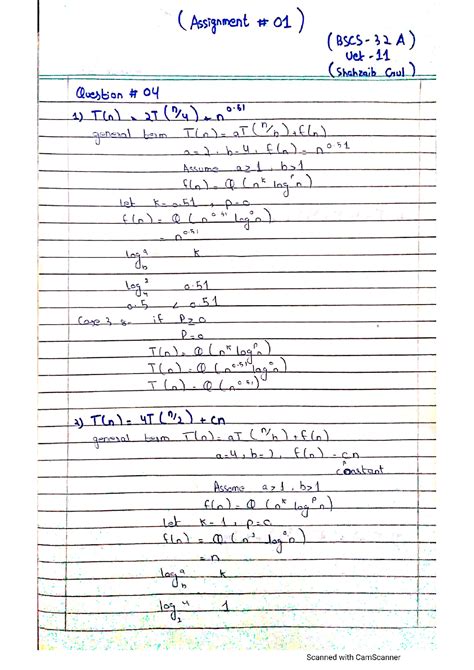 (Assignment # 01)
(BSCS-32 A)
Uet-11
(Shahzaib Gul)
Question # 04
1) T(n) = 2T(n/4) + n^0.51
general term T(n) = aT(n/b) + f(n)
a=2, b=4, f(n) = n^0.51
Assume a≥1, b>1
f(n) = Θ(n^k log^p n)
let k=0.51, p=0
f(n) = Θ(n^0.51 log^0 n)
= n^0.51
log_b^a k
log_4^2 0.51
0.5 < 0.51
Case 3 :- if P≥0
P=0
T(n) = Θ(n^k log^p n)
T(n) = Θ(n^0.51 log^0 n)
T(n) = Θ(n^0.51)
2) T(n) = 4T(n/2) + cn
general term T(n) = aT(n/b) + f(n)
a=4, b=2, f(n) = cn
constant
Assume a≥1, b>1
f(n) = Θ(n^k log^p n)
let k=1, p=0
f(n) = Θ(n^1 log^0 n)
= n
log_b^a k
log_2^4 1
Scanned with CamScanner